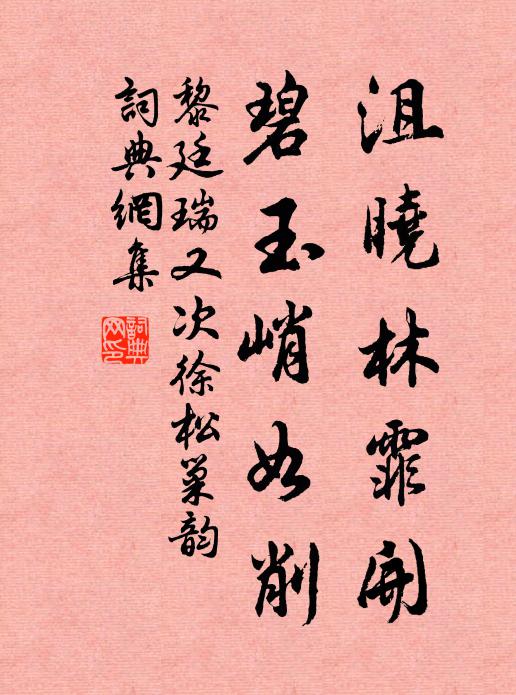 沮曉林霏開
碧玉峭如削
黎廷瑞又次徐松巢韵
詞典網集
詞典網印